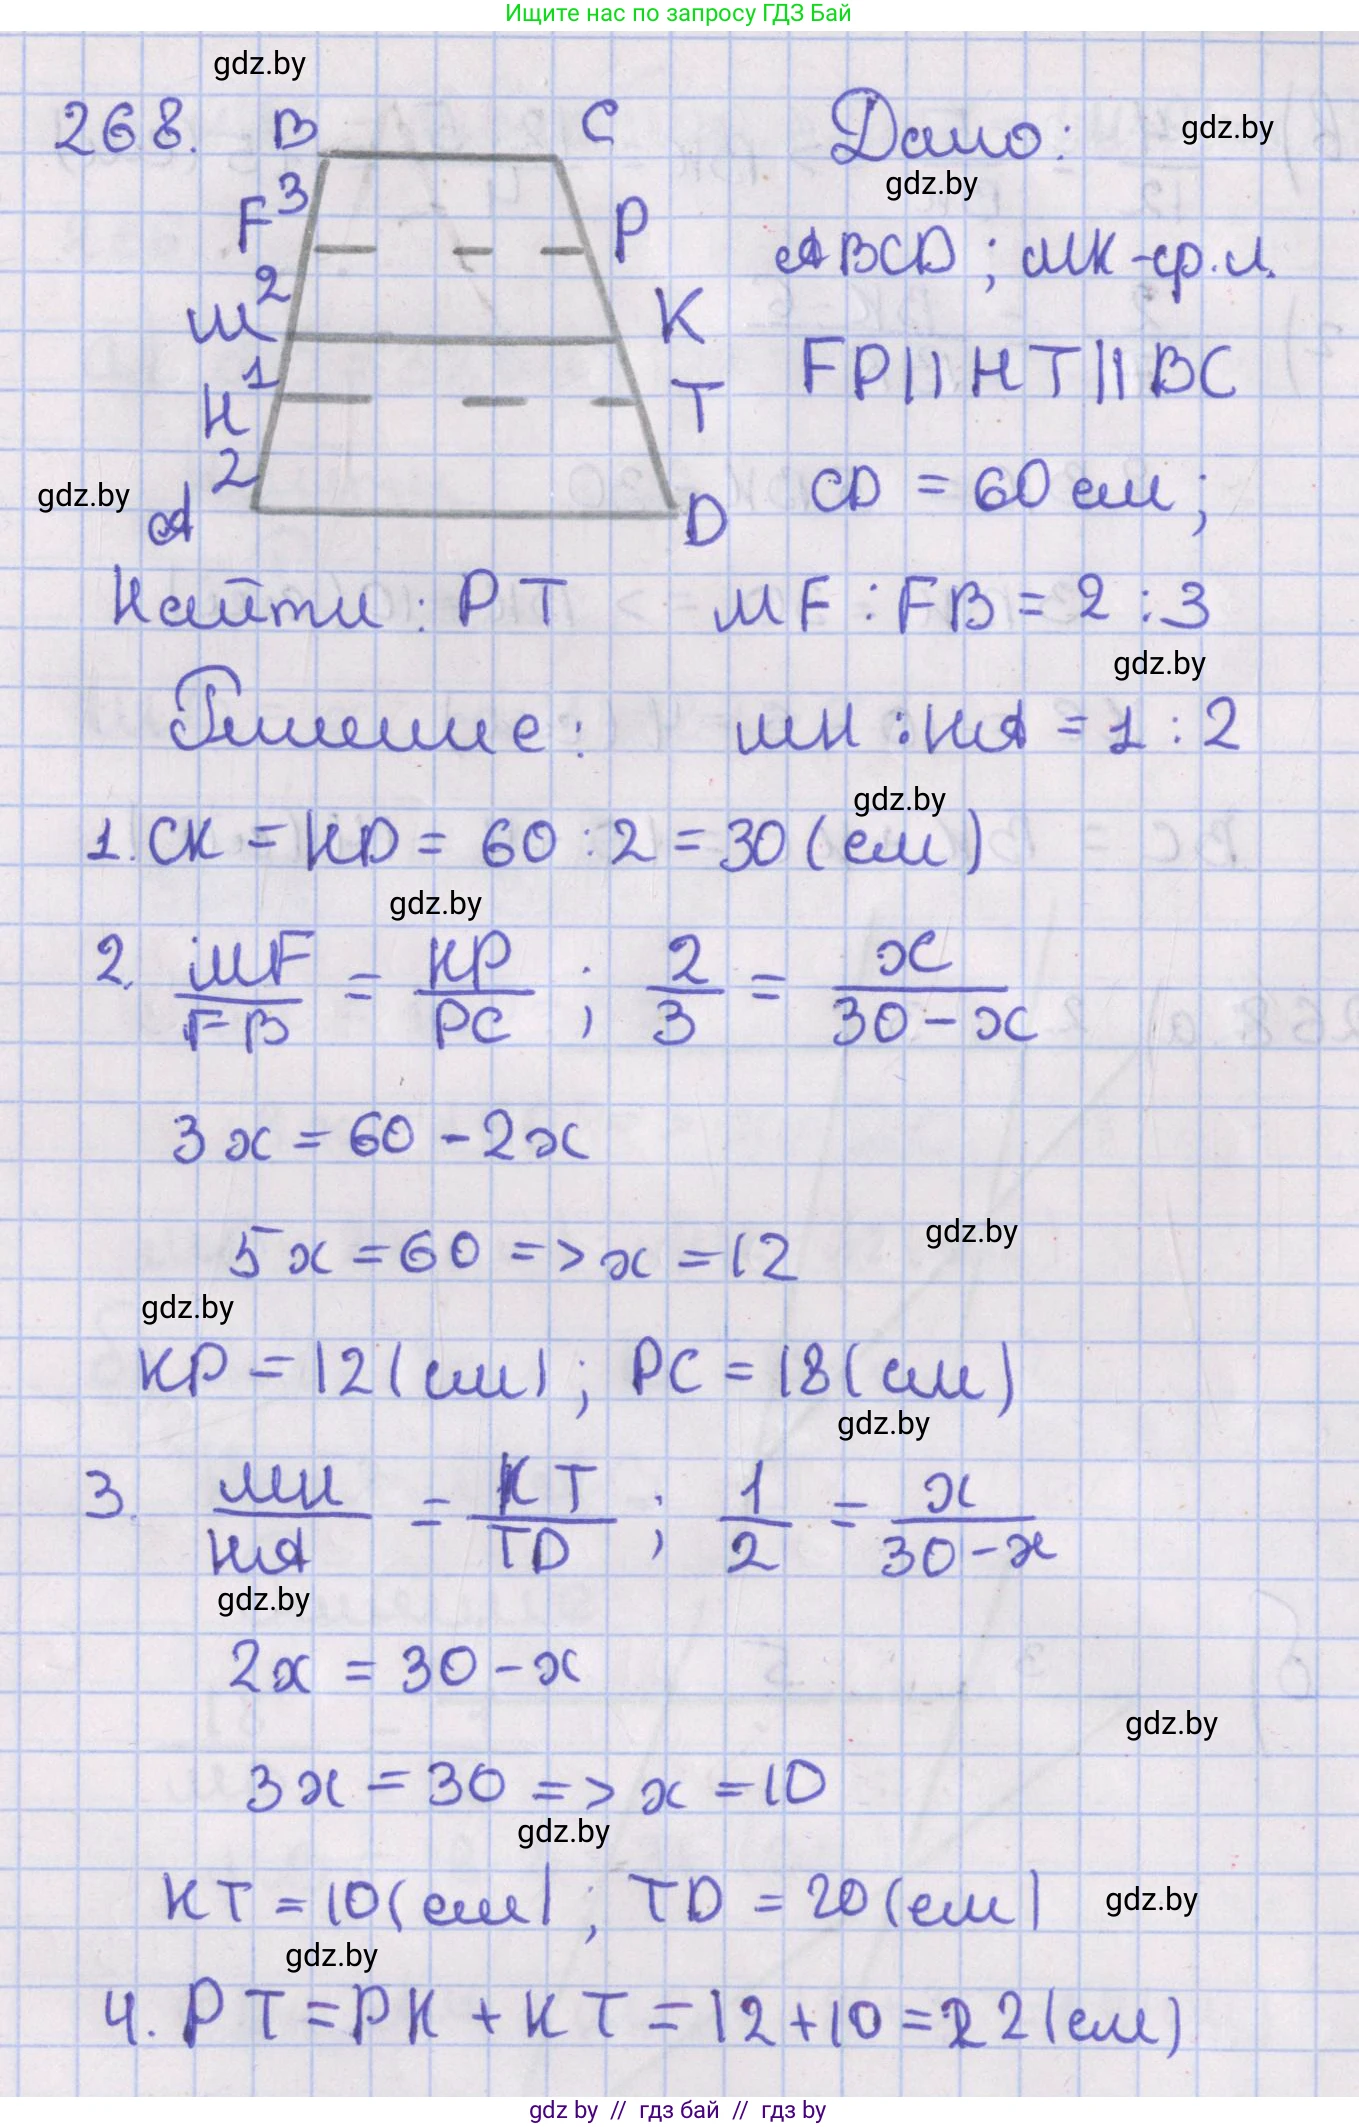 Ищите нас по запросу ГДЗ Бай
gdz.by
268. B C Дано: gdz.by
gdz.by
F 3 P ABCD; MK-ср.л.
M 2 K
FP||HT||BC
H 1 T
gdz.by 2 CD = 60 см;
A D
Найти: PT MF : FB = 2 : 3
gdz.by
Решение: MH : HA = 1 : 2
gdz.by
1. CK = KD = 60 : 2 = 30 (см)
gdz.by
2. MF/FB = KP/PC ; 2/3 = x/30-x
3x = 60 - 2x
gdz.by
5x = 60 => x = 12
gdz.by
KP = 12 (см); PC = 18 (см)
gdz.by
3. MH/HA = KT/TD ; 1/2 = x/30-x
gdz.by
2x = 30 - x
gdz.by
3x = 30 => x = 10
gdz.by
KT = 10 (см); TD = 20 (см) gdz.by
gdz.by
4. PT = PK + KT = 12 + 10 = 22 (см)
gdz by // гдз бай // гдз by